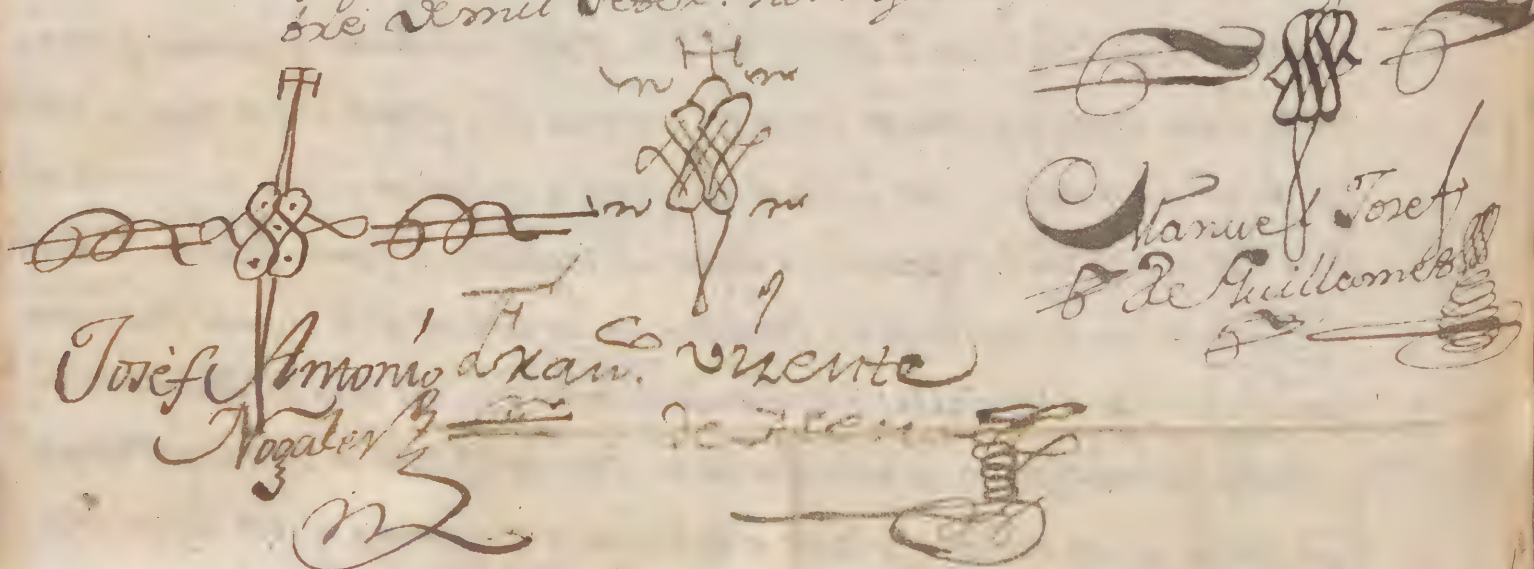 bre de mil
Josèf Antonio
Nogales
Fran.co Vizente
de
Manuel Josef
de Guillamas